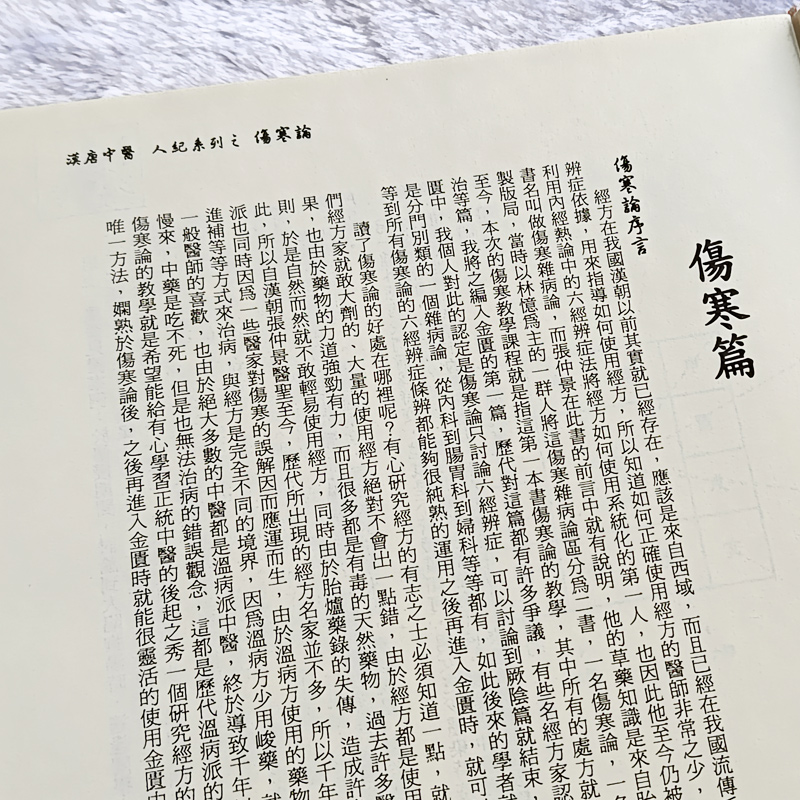 漢唐中醫 人紀系列之 傷寒論
傷寒篇
傷寒論序言
經方在我國漢朝以前其實就已經存在，應該是來自西域，而且已經在我國流傳
辨症依據，用來指導如何使用經方，所以知道如何正確使用經方的醫師非常之少，
利用內經熱論中的六經辨症法將經方如何使用系統化的第一人，也因此他至今仍被
書名叫做傷寒雜病論，而張仲景在此書的前言中就有說明，他的草藥知識是來自
製版局，當時以林憶為主的一群人將這傷寒雜病論區分為二書，一名傷寒論，一名
至今，本次的傷寒教學課程就是指這第一本書傷寒論的教學，其中所有的處方就
治等篇，我將之編入金匱的第一篇，歷代對這篇都有許多爭議，有些名經方家認
匱中，我個人對此的認定是傷寒論只討論六經辨症，可以討論到厥陰篇就結束，
是分門別類的一個雜病論，從內科到腸胃科到婦科等等都有，如此後來的學者就
等到所有傷寒論的六經辨症條辨都能夠很純熟的運用之後再進入金匱時，就可
讀了傷寒論的好處在哪裡呢？有心研究經方的有志之士必須知道一點，就
們經方家就敢大劑的、大量的使用經方絕對不會出一點錯，由於經方都是使用
果，也由於藥物的力道強勁有力，而且很多都是有毒的天然藥物，過去許多醫
則，於是自然而然就不敢輕易使用經方，同時由於胎臚藥錄的失傳，造成許
此，所以自漢朝張仲景醫聖至今，歷代所出現的經方名家並不多，所以千年
派也同時因為一些醫家對傷寒的誤解因而應運而生，由於溫病方使用的藥物
進補等等方式來治病，與經方是完全不同的境界，因為溫病方少用峻藥，就
一般醫師的喜歡，也由於絕大多數的中醫都是溫病派中醫，終於導致千年
慢來，中藥是吃不死，但是也無法治病的錯誤觀念，這都是歷代溫病派的
傷寒論的教學就是希望能給有心學習正統中醫的後起之秀一個研究經方的
唯一方法，嫻熟於傷寒論後，之後再進入金匱時就能很靈活的使用金匱中